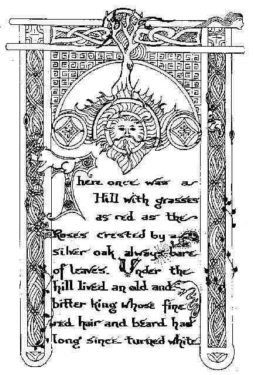 There once was a
Hill with grasses
as red as the
Roses crested by a
silver oak always bare
of leaves. Under the
hill lived an old and
bitter king whose fine
red hair and beard had
long since turned white